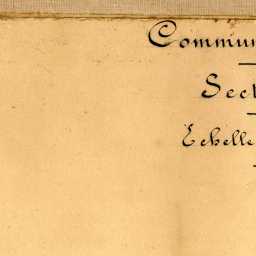 Commun
Sect
Echelle